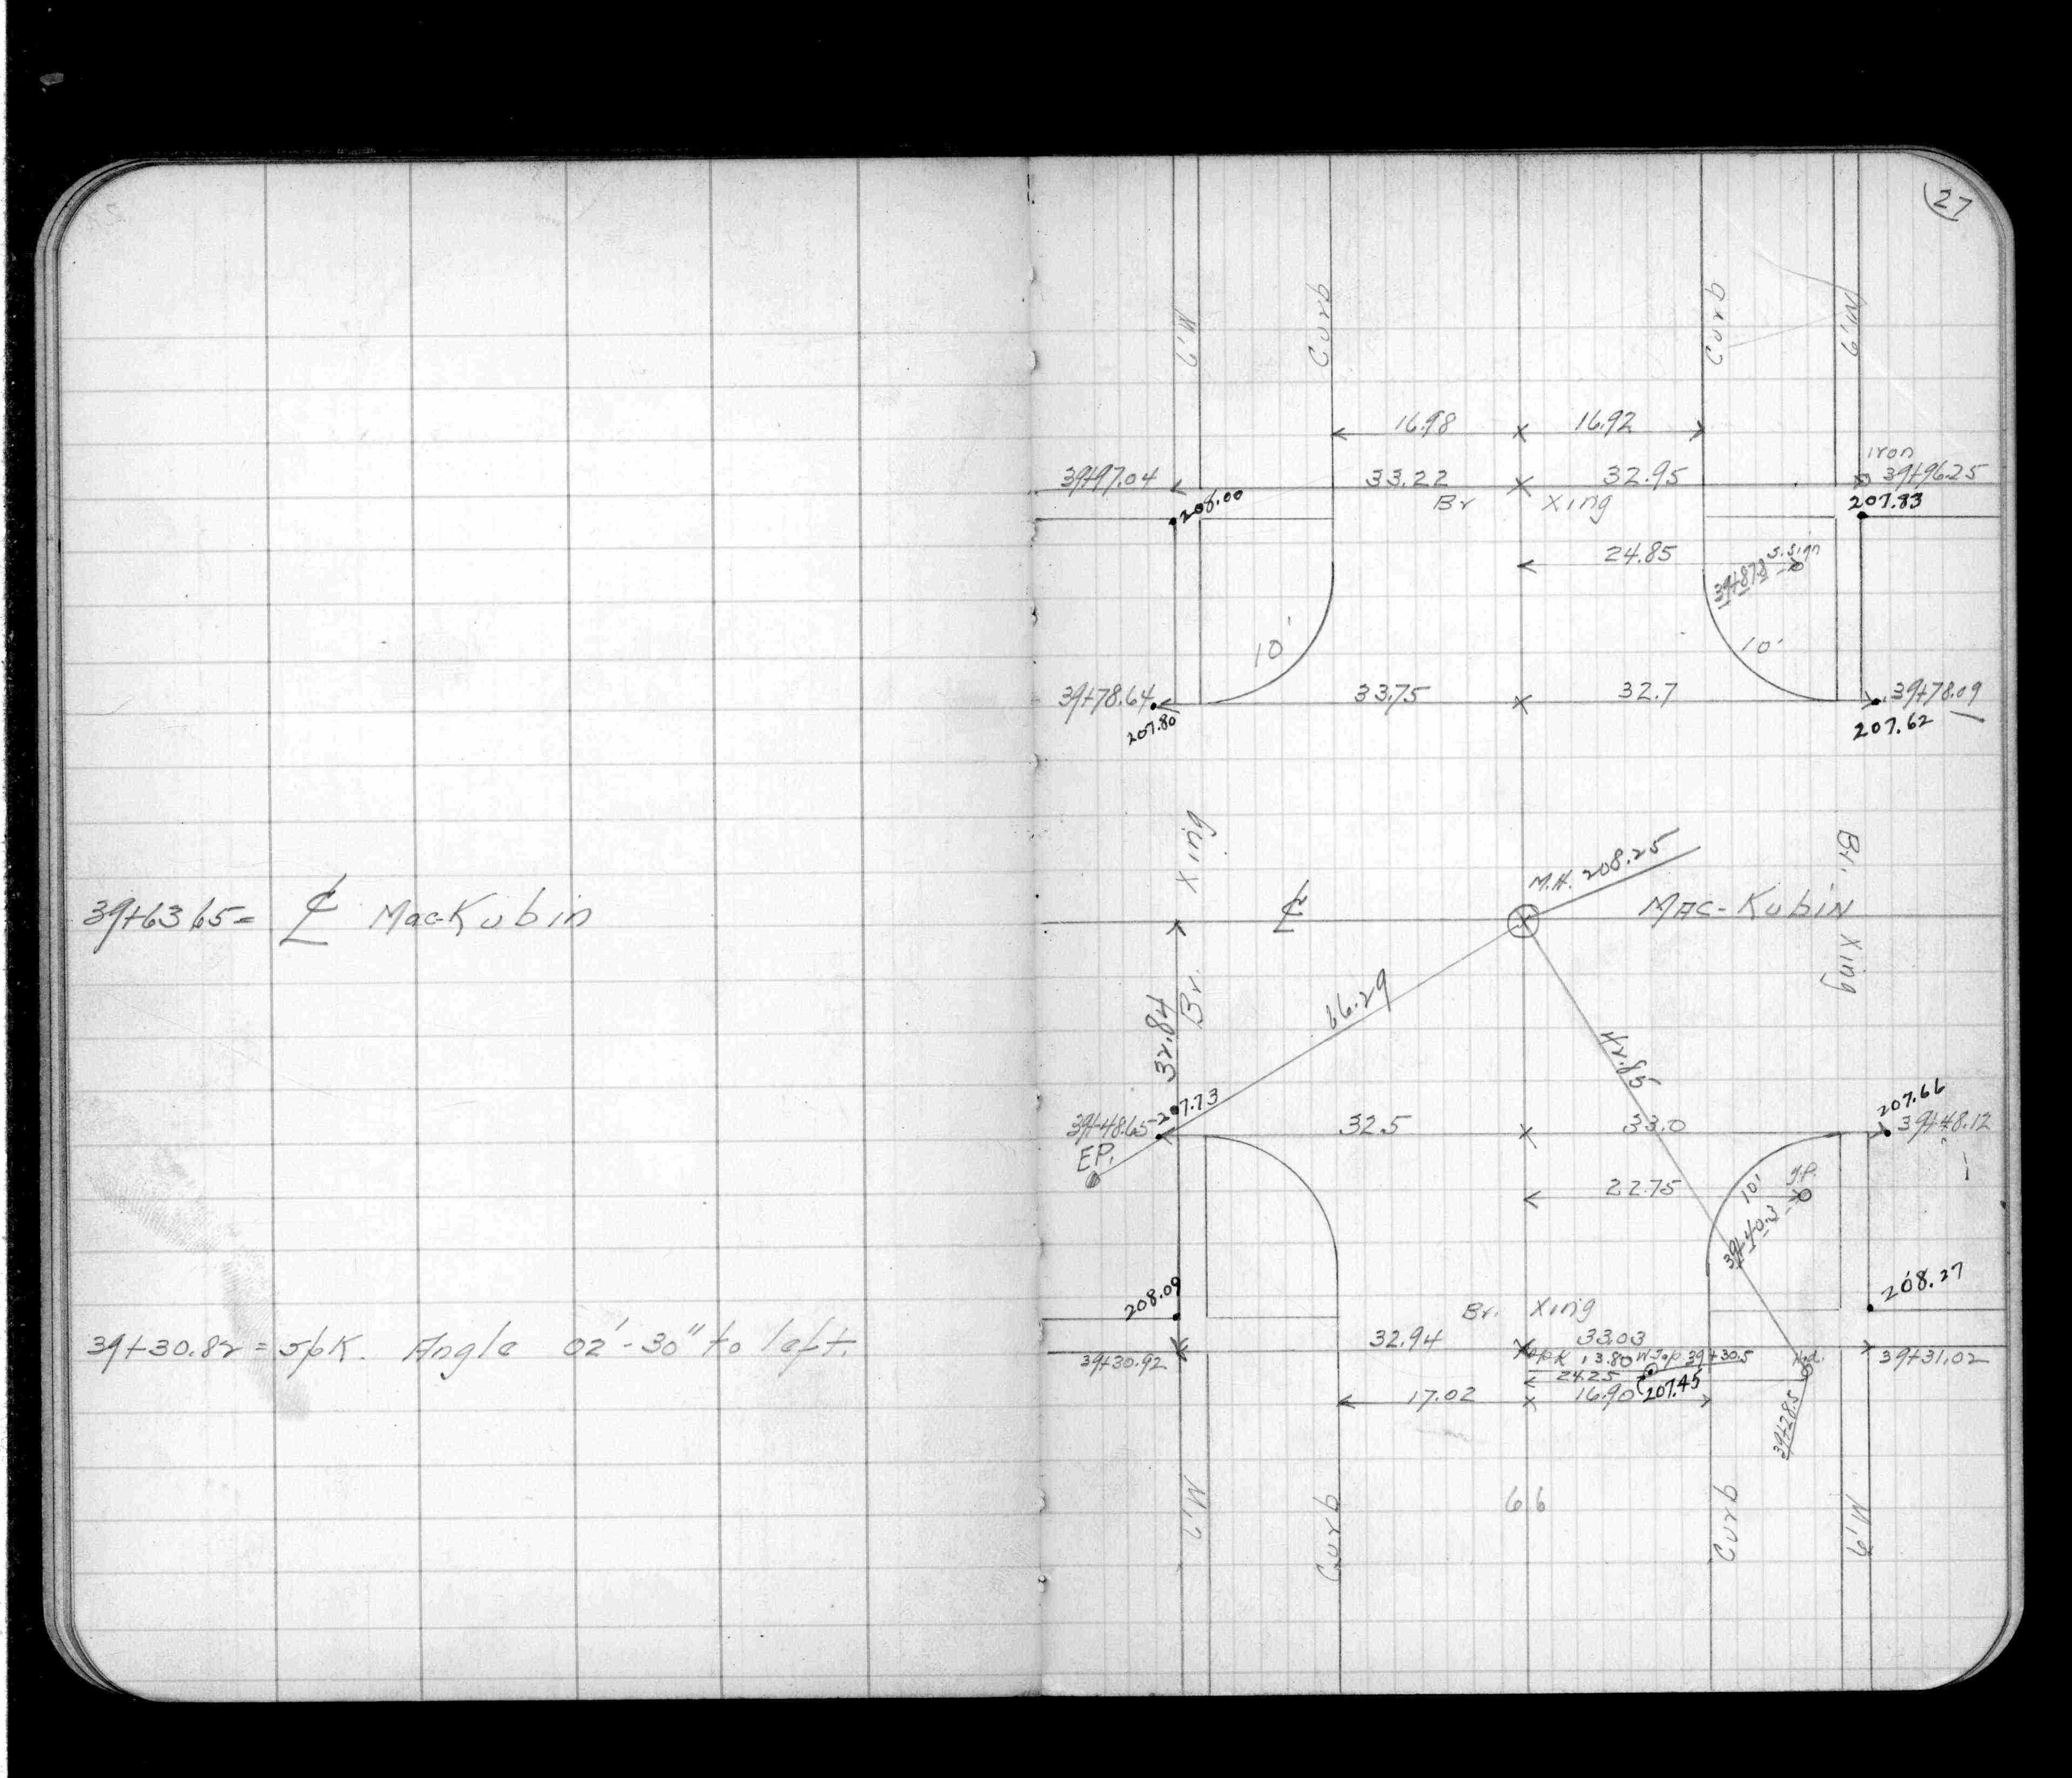 39+63.65= ℄ Mac-Kubin
39+30.82 = SpK. Angle 02'-30" to left.
27
6'W
Curb
Curb
6'W
16.98 16.92
Iron
39+97.04 33.22 32.95 39+96.25
208.00 Br Xing 207.83
24.85 S.Sign
39+87.8
10' 10'
39+78.64 33.75 32.7 39+78.09
207.80 207.62
Br. Xing
Br. Xing
M.H. 208.25
℄ MAC-KUBIN
32.84
66.29
42.85
207.73 207.66
39+48.65 32.5 33.0 39+48.12
E.P.
22.75
10'
39+40.3
208.09 208.27
Br. Xing
32.94 33.03
39+30.92 SpK 13.80 W Top 39+30.5 Hyd. 39+31.02
24.25
17.02 16.90 207.45
39+28.5
6'W
Curb
66
Curb
6'W